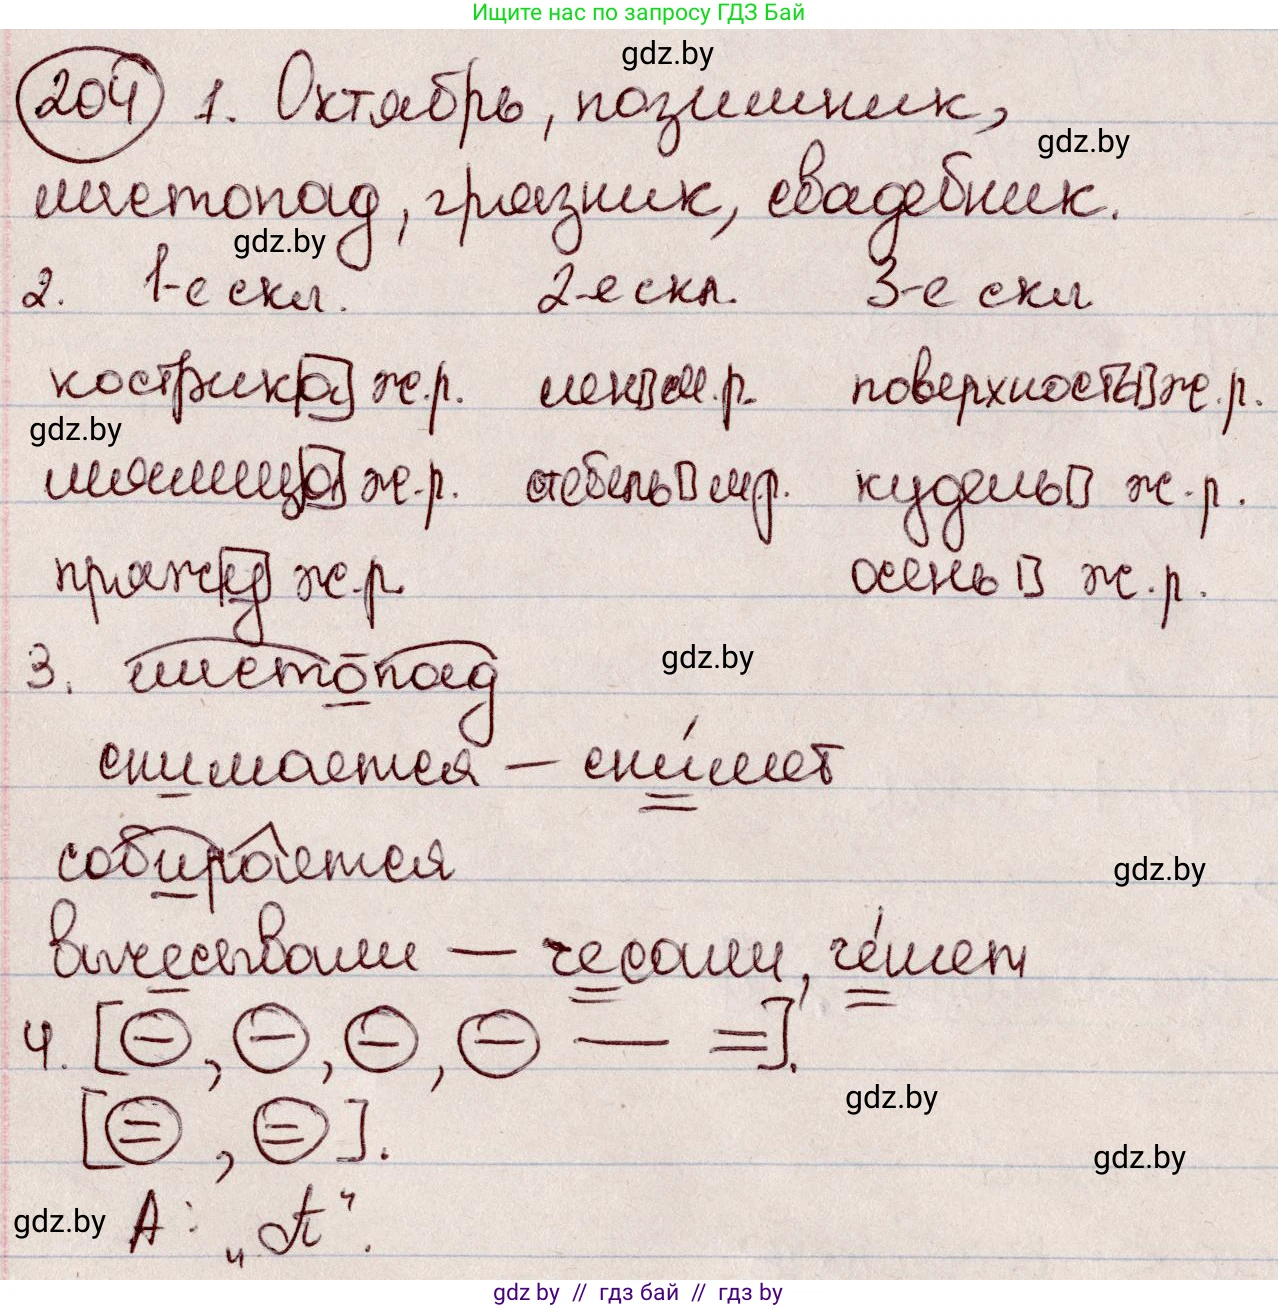 Ищите нас по запросу ГДЗ Бай
gdz.by
204 1. Октябрь, позимник,
gdz.by
листопад, грязник, свадебник.
gdz.by
2. 1-е скл. 2-е скл. 3-е скл
кострика ж.р. лен м.р. поверхность ж.р.
gdz.by
мялица ж.р. стебель м.р. кудель ж.р.
пряжа ж.р. осень ж.р.
3. листопад
gdz.by
снимается – снимет
собирается
gdz.by
вычесывали – чесали, чешет
4. [–, –, –, – — =].
gdz.by
[=, =].
gdz.by
А: „А“.
gdz.by
gdz by // гдз бай // гдз by